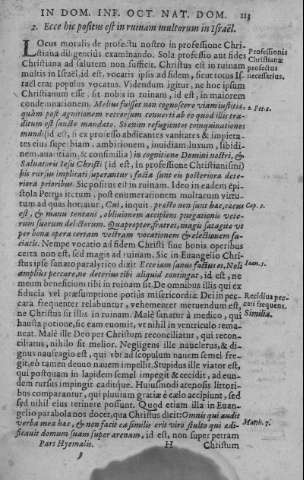 IN DOM. INF. OCT. NAT. DOM. 113
2. Ecce hic positus est in ruinam multorum in Israël.
LOcus moralis de profectu nostro in professione Chri-
stiana diligenciùs examinando. Sola professio aut fides
Christiana ad salutem non sufficit. Christus est in ruinam
multis in Israël, id est, vocatis ipsius ad fidem, sicut totus Is-
raël erat populus vocatus. Videndum igitur, ne hoc ipsum
Christianum esse, sit nobis in ruinam, id est, in maiorem
condemnationem. Melius fuisset non cognoscere viam iustitiæ,
quàm post agnitionem retrorsum converti ab eo quod illis tra-
ditum est sancto mandato. Siquidem refugientes coinquinationes
mundi (id est, si ex professo abdicantes vanitates & impieta-
tes eius superbiam, ambitionem, invidiam, luxum, libidi-
nem, avaritiam, & consimilia) in cognitione Domini nostri, &
Salvatoris Iesu Christi (id est, in professione Christianismi)
his rursus implicati superantur, facta sunt eis posteriora dete-
riora prioribus. Sic positus est in ruinam. Ideo in eadem epi-
stola Petrus iterum, post enumerationem multarum virtu-
tum ad quas hortatur, Cui, inquit, præsto non sunt hæc, cæcus
est, & manu tentans, oblivionem accipiens purgationis vete-
rum suorum delictorum. Quapropter, fratres, magis satagite ut
per bona opera certam vestram vocationem & electionem fa-
ciatis. Nempe vocatio ad fidem Christi sine bonis operibus
certa non est, sed magis ad ruinam. Sic in Euangelio Chri-
stus ipse sanato paralytico dixit Ecce iam sanus factus es, Noli
ampliùs peccare, ne deterius tibi aliquid contingat, id est, ne
meum beneficium tibi in ruinam sit. De omnibus illis qui ex
fiducia vel præsumptione potiùs misericordiæ Dei in pec-
cata frequenter relabuntur, vehementer metuendum est,
ne Christus sit illis in ruinam. Malè sanatur à medico, qui
hausta potione, sic eam euomit, vt nihil in ventriculo rema-
neat. Malè ille Deo per Christum reconciliatur, qui recon-
ciliatus, nihilo fit melior. Negligens ille nauclerus, & di-
gnus naufragio est, qui vbi ad scopulum nauem semel fre-
git, eò tamen denuo nauem impellit. Stupidus ille viator est,
qui postquam in lapidem semel impegit & cecidit, ad eun-
dem rursus impingit caditque. Huiusmodi arenosis littori-
bus comparantur, qui pluuiam gratiæ è cælo accipiunt, sed
sed nihil eius retinere possunt. Quod etiam illa in Euan-
gelio parabola nos docet, qua Christus dicit: Omnis qui audit
verba mea hæc, & non facit ea similis erit viro stulto qui ædi-
ficauit domum suam super arenam, id est, non super petram
Pars Hyemalis. H Christum
Professionis
Christianæ
profectus
necessarius.
2. Pet. 2.
Cap. 1.
Ioan. 5.
Recidiua pec-
cati frequens.
Similia.
Matth. 7.